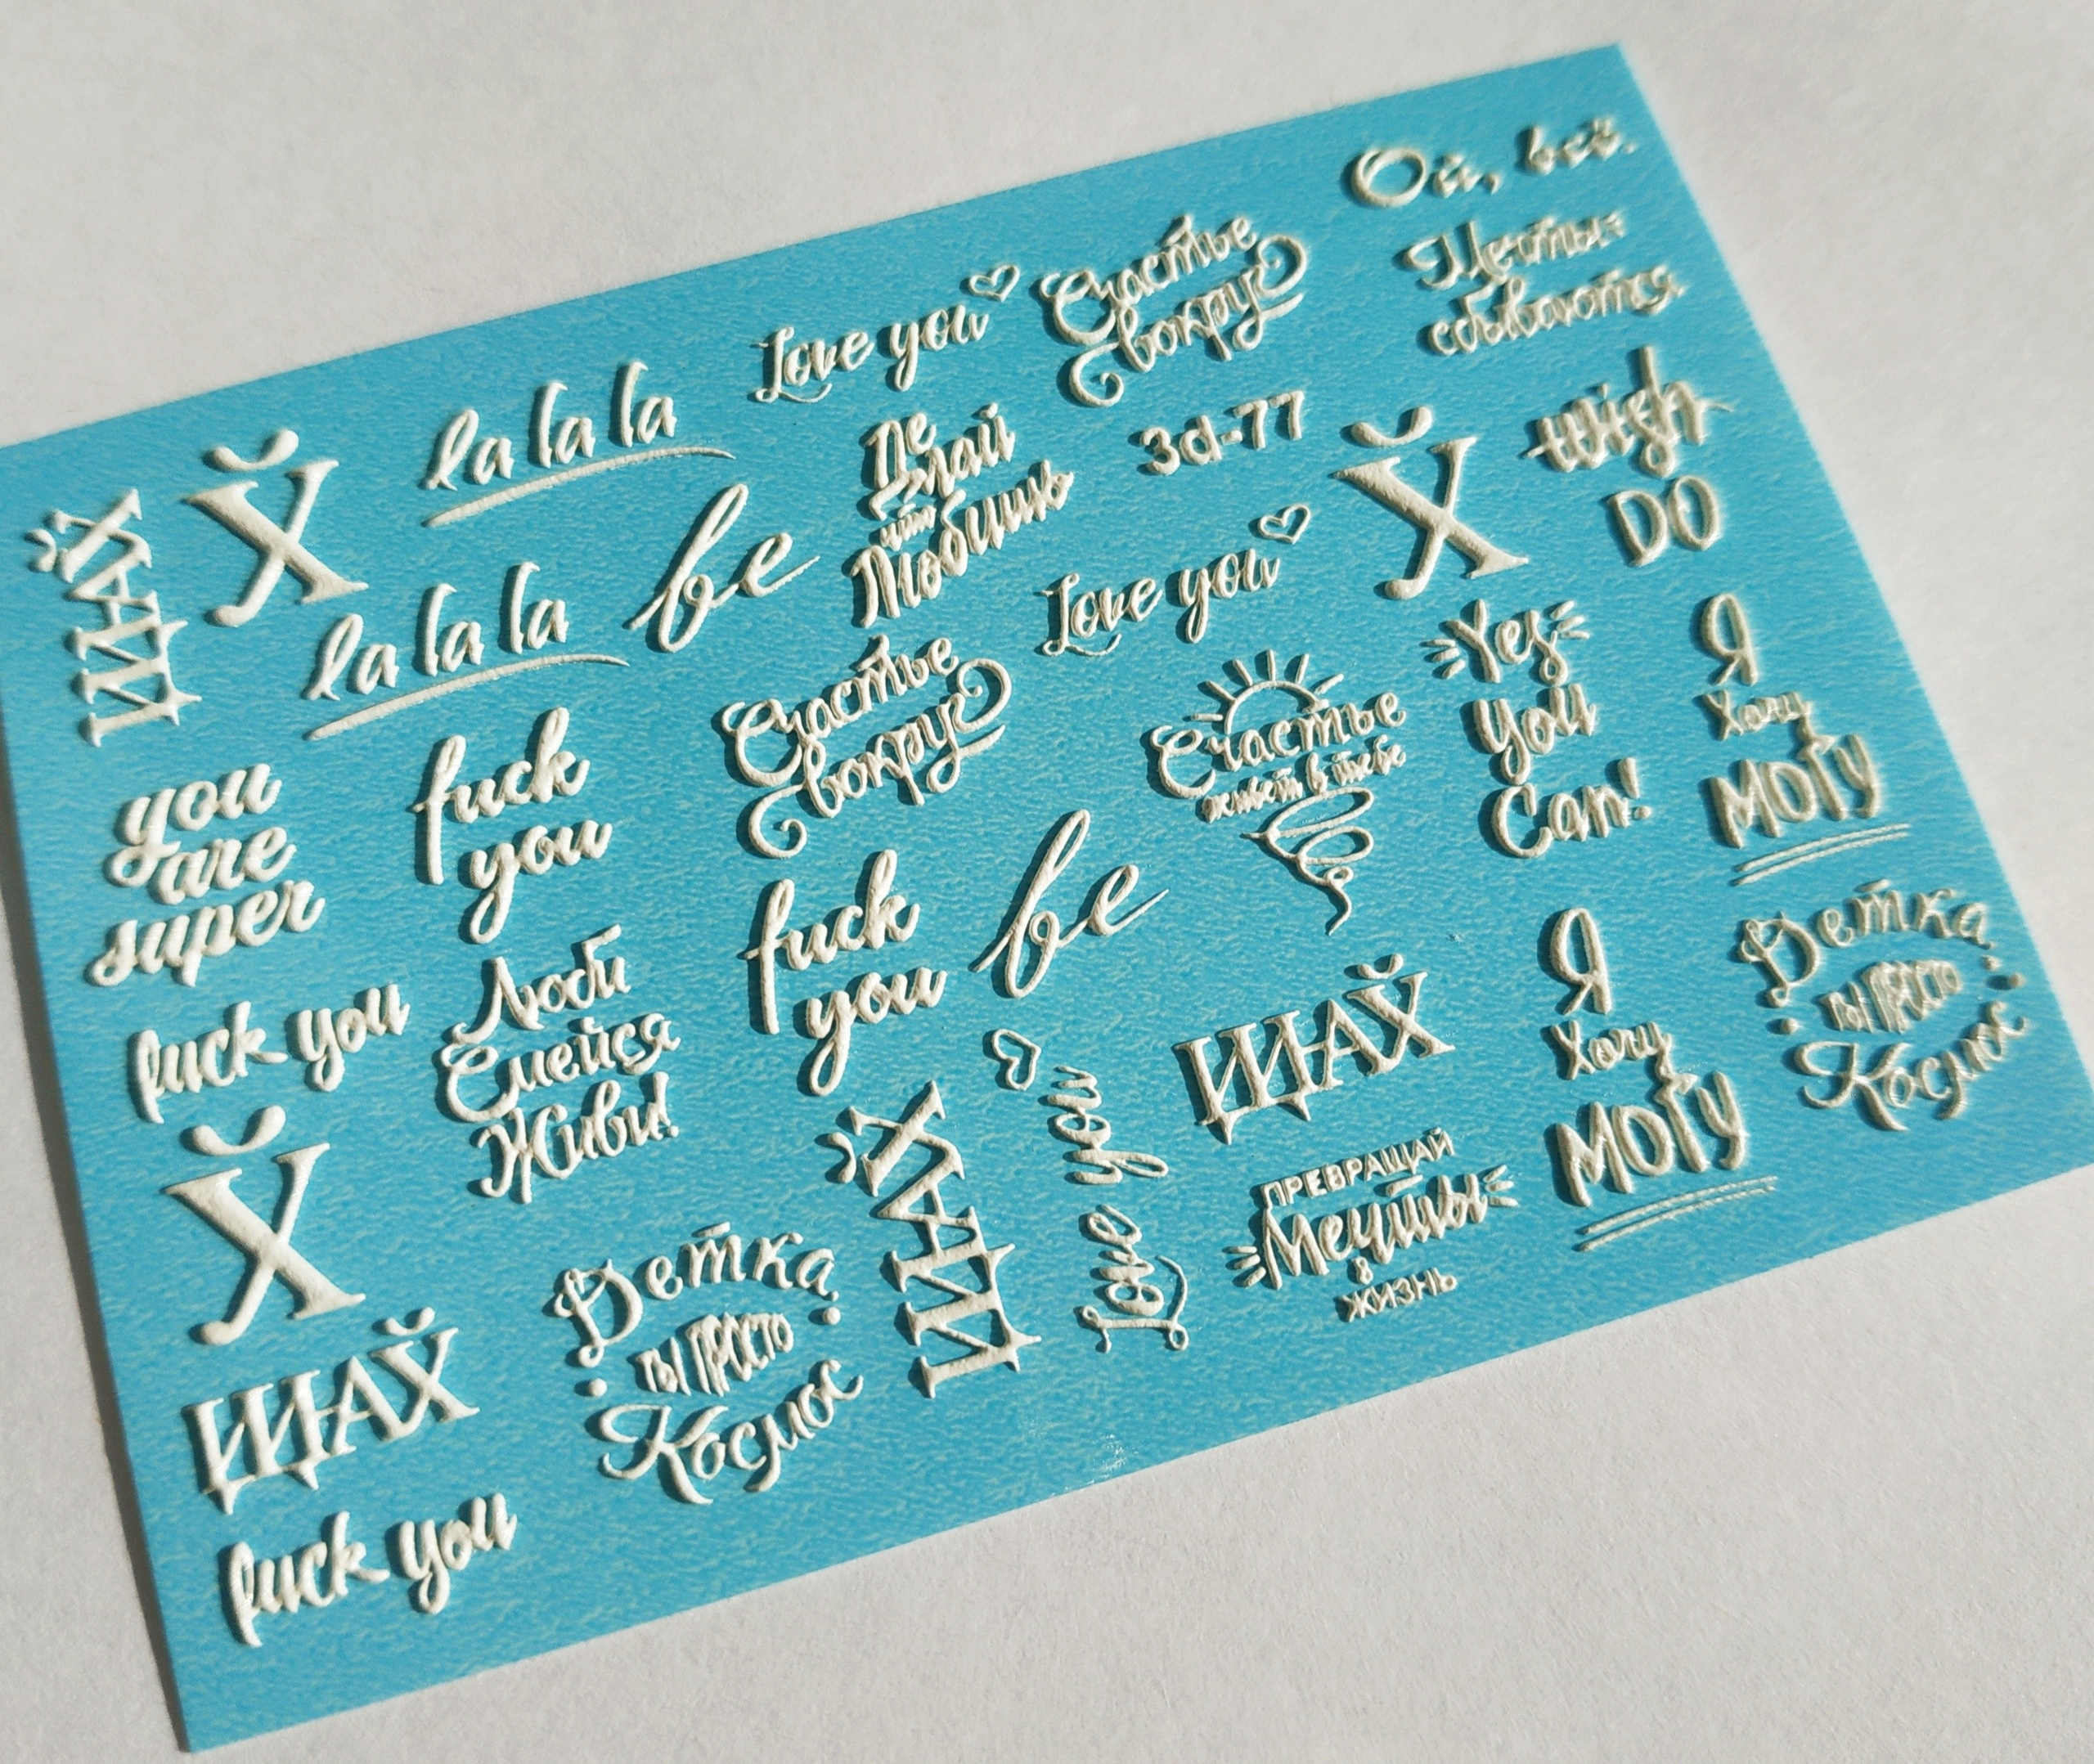 Ой, всё.
Love you
Счастье
вокруг
Мечты
сбываются
la la la
Делай
что
Любишь
3d-77
X̆
Wish
DO
ЩАЙ̆Х
X̆
la la la
be
Love you
Yes
You
Can!
Я
Хочу
Могу
you
are
super
fuck
you
Счастье
вокруг
Счастье
живёт в тебе
fuck
you
be
Я
Хочу
Могу
Детка
ты просто
Космос
fuck you
Люби
Смейся
Живи!
ЩАХ̆
Love you
ЩАХ̆
ПРЕВРАЩАЙ
Мечты
в
ЖИЗНЬ
X̆
Детка
ты просто
Космос
ЩАХ̆
fuck you